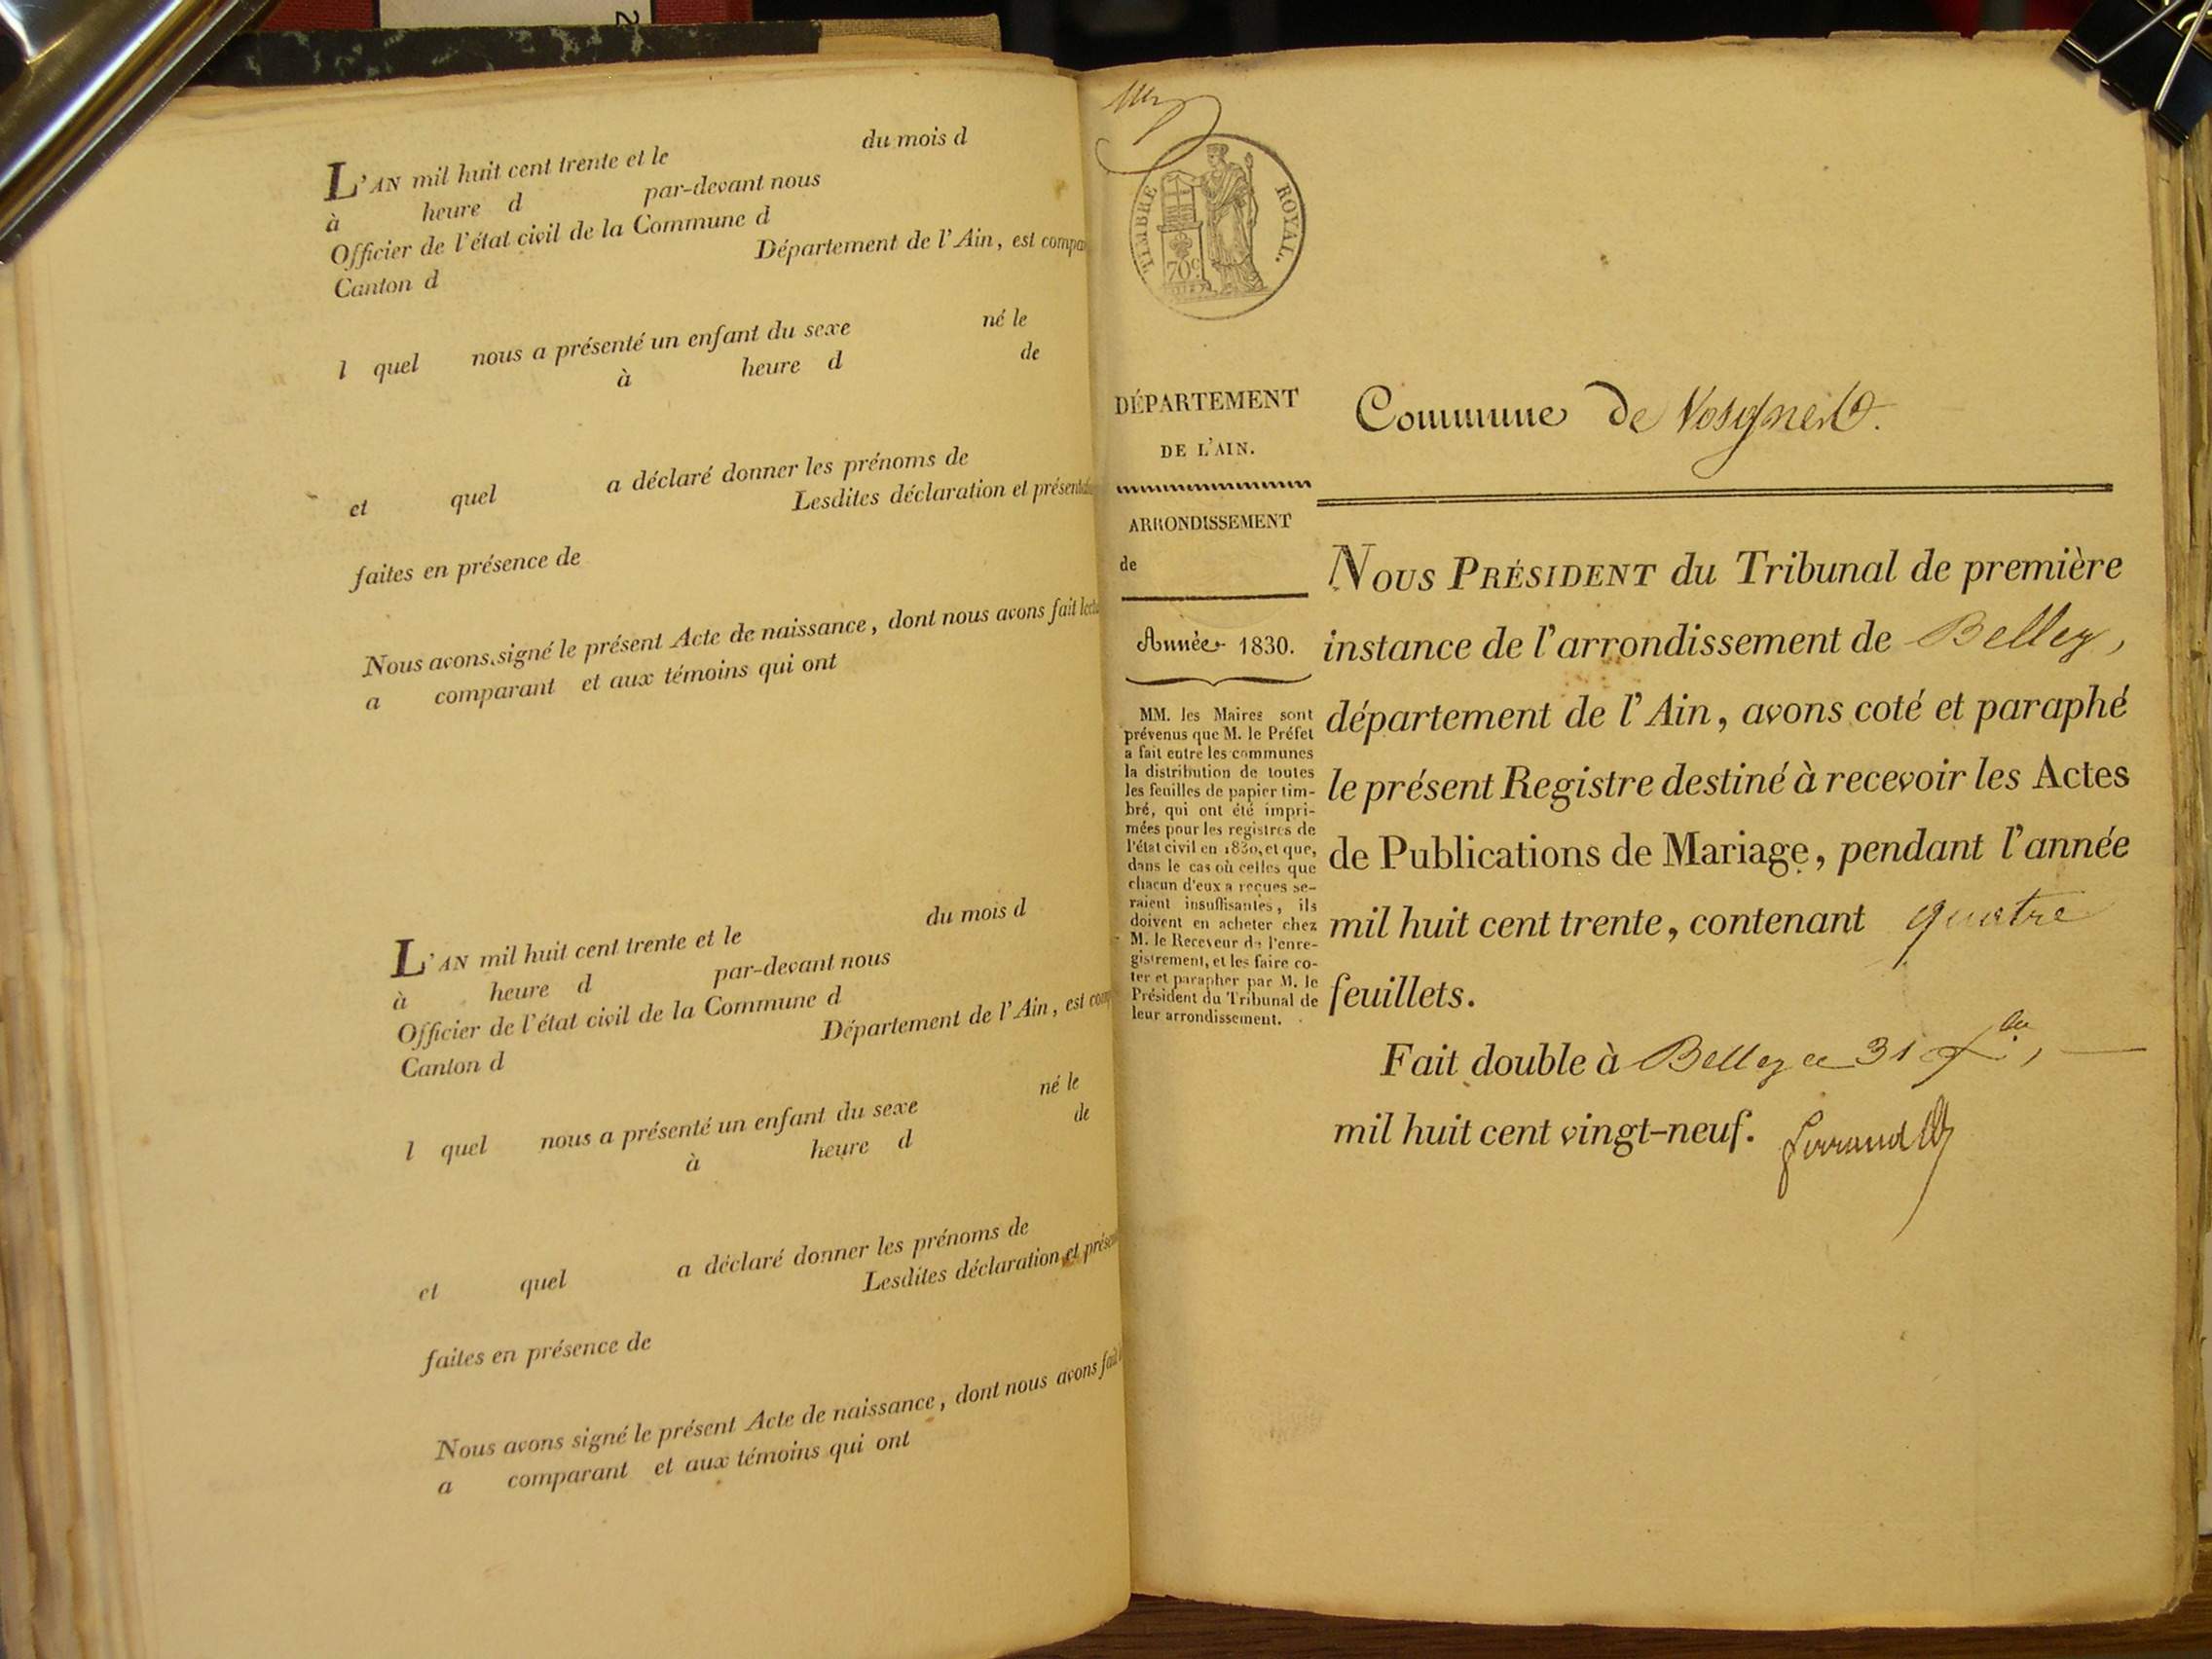 2
L'AN mil huit cent trente et le du mois d
à heure d par-devant nous
Officier de l'état civil de la Commune d
Canton d Département de l'Ain, est compa
l quel nous a présenté un enfant du sexe né le
à heure d de
et quel a déclaré donner les prénoms de
Lesdites déclaration et présenta
faites en présence de
Nous avons signé le présent Acte de naissance, dont nous avons fait lectu
a comparant et aux témoins qui ont
L'AN mil huit cent trente et le du mois d
à heure d par-devant nous
Officier de l'état civil de la Commune d
Canton d Département de l'Ain, est comp
l quel nous a présenté un enfant du sexe né le
à heure d de
et quel a déclaré donner les prénoms de
Lesdites déclaration et présen
faites en présence de
Nous avons signé le présent Acte de naissance, dont nous avons fait
a comparant et aux témoins qui ont
TIMBRE ROYAL.
70c
DÉPARTEMENT
DE L'AIN.
ARRONDISSEMENT
de
Année 1830.
MM. les Maires sont
prévenus que M. le Préfet
a fait entre les communes
la distribution de toutes
les feuilles de papier tim-
bré, qui ont été impri-
mées pour les registres de
l'état civil en 1830, et que,
dans le cas où celles que
chacun d'eux a reçues se-
raient insuffisantes, ils
doivent en acheter chez
M. le Receveur de l'enre-
gistrement, et les faire co-
ter et parapher par M. le
Président du Tribunal de
leur arrondissement.
Commune de
NOUS PRÉSIDENT du Tribunal de première
instance de l'arrondissement de Belley,
département de l'Ain, avons coté et paraphé
le présent Registre destiné à recevoir les Actes
de Publications de Mariage, pendant l'année
mil huit cent trente, contenant quatre
feuillets.
Fait double à Belley ce 31 Xbre,
mil huit cent vingt-neuf.